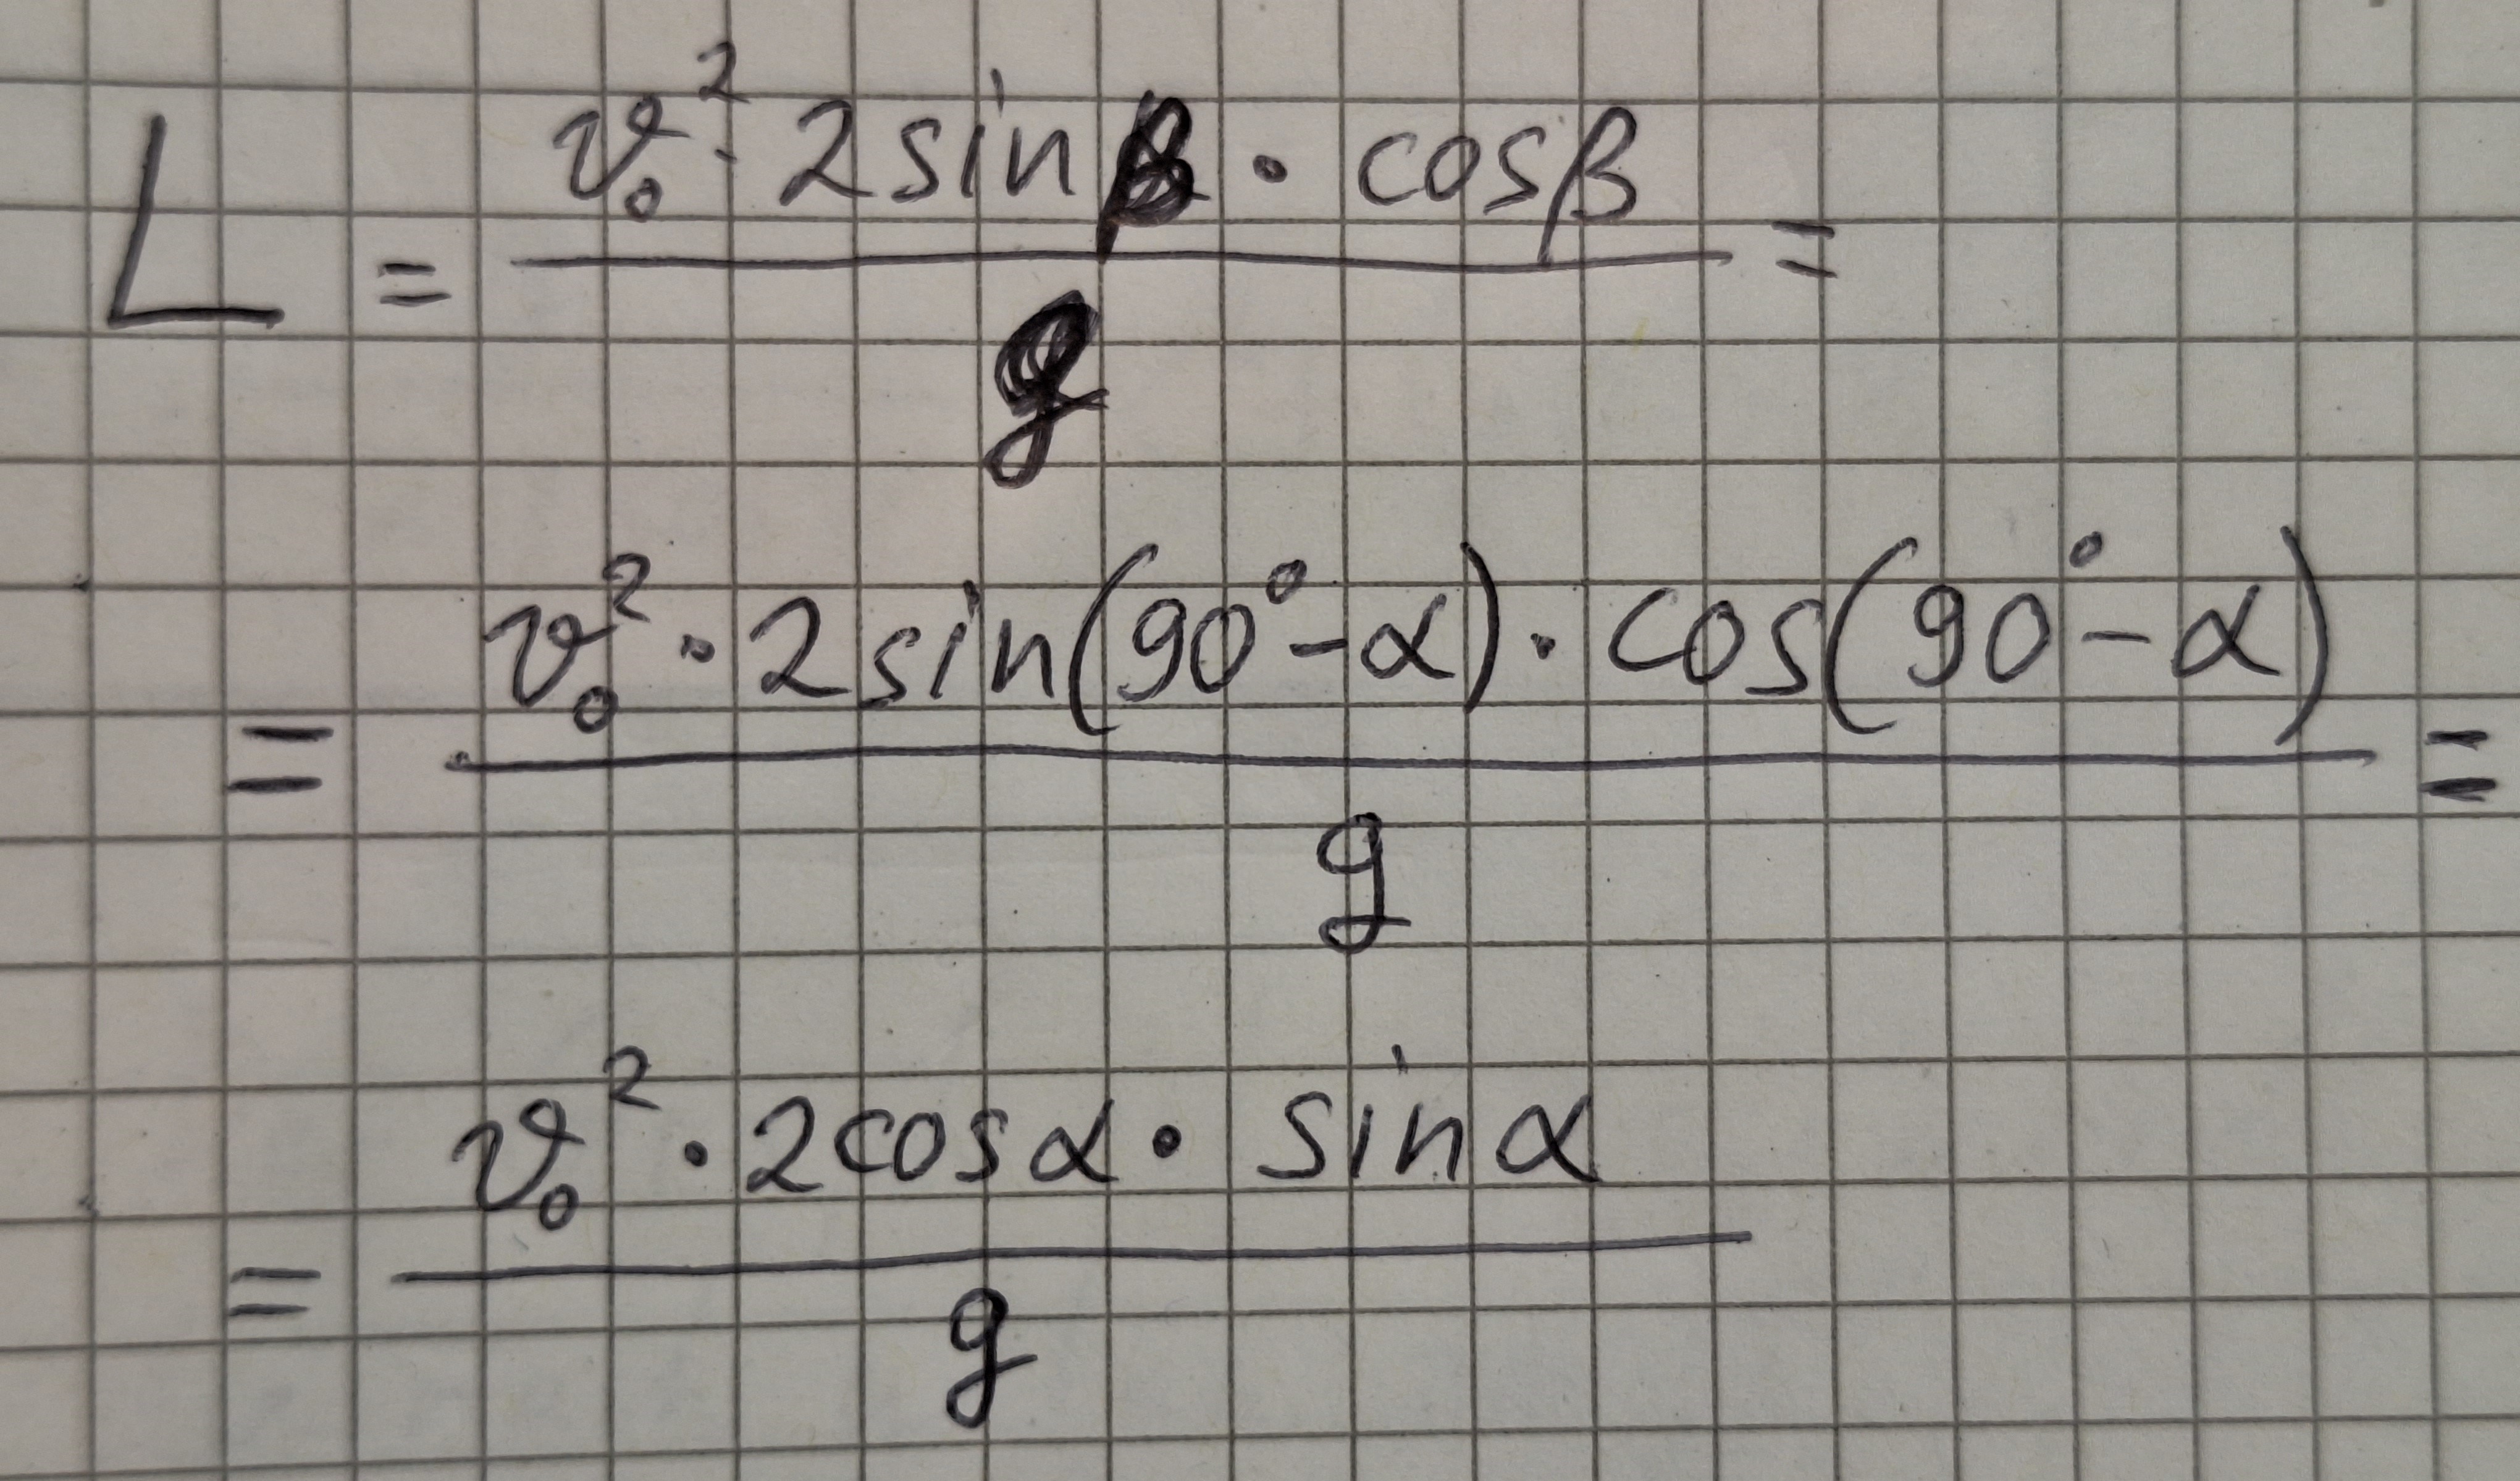 L = v₀² · 2 sin β · cos β / g =
= v₀² · 2 sin(90° - α) · cos(90° - α) / g =
= v₀² · 2 cos α · sin α / g